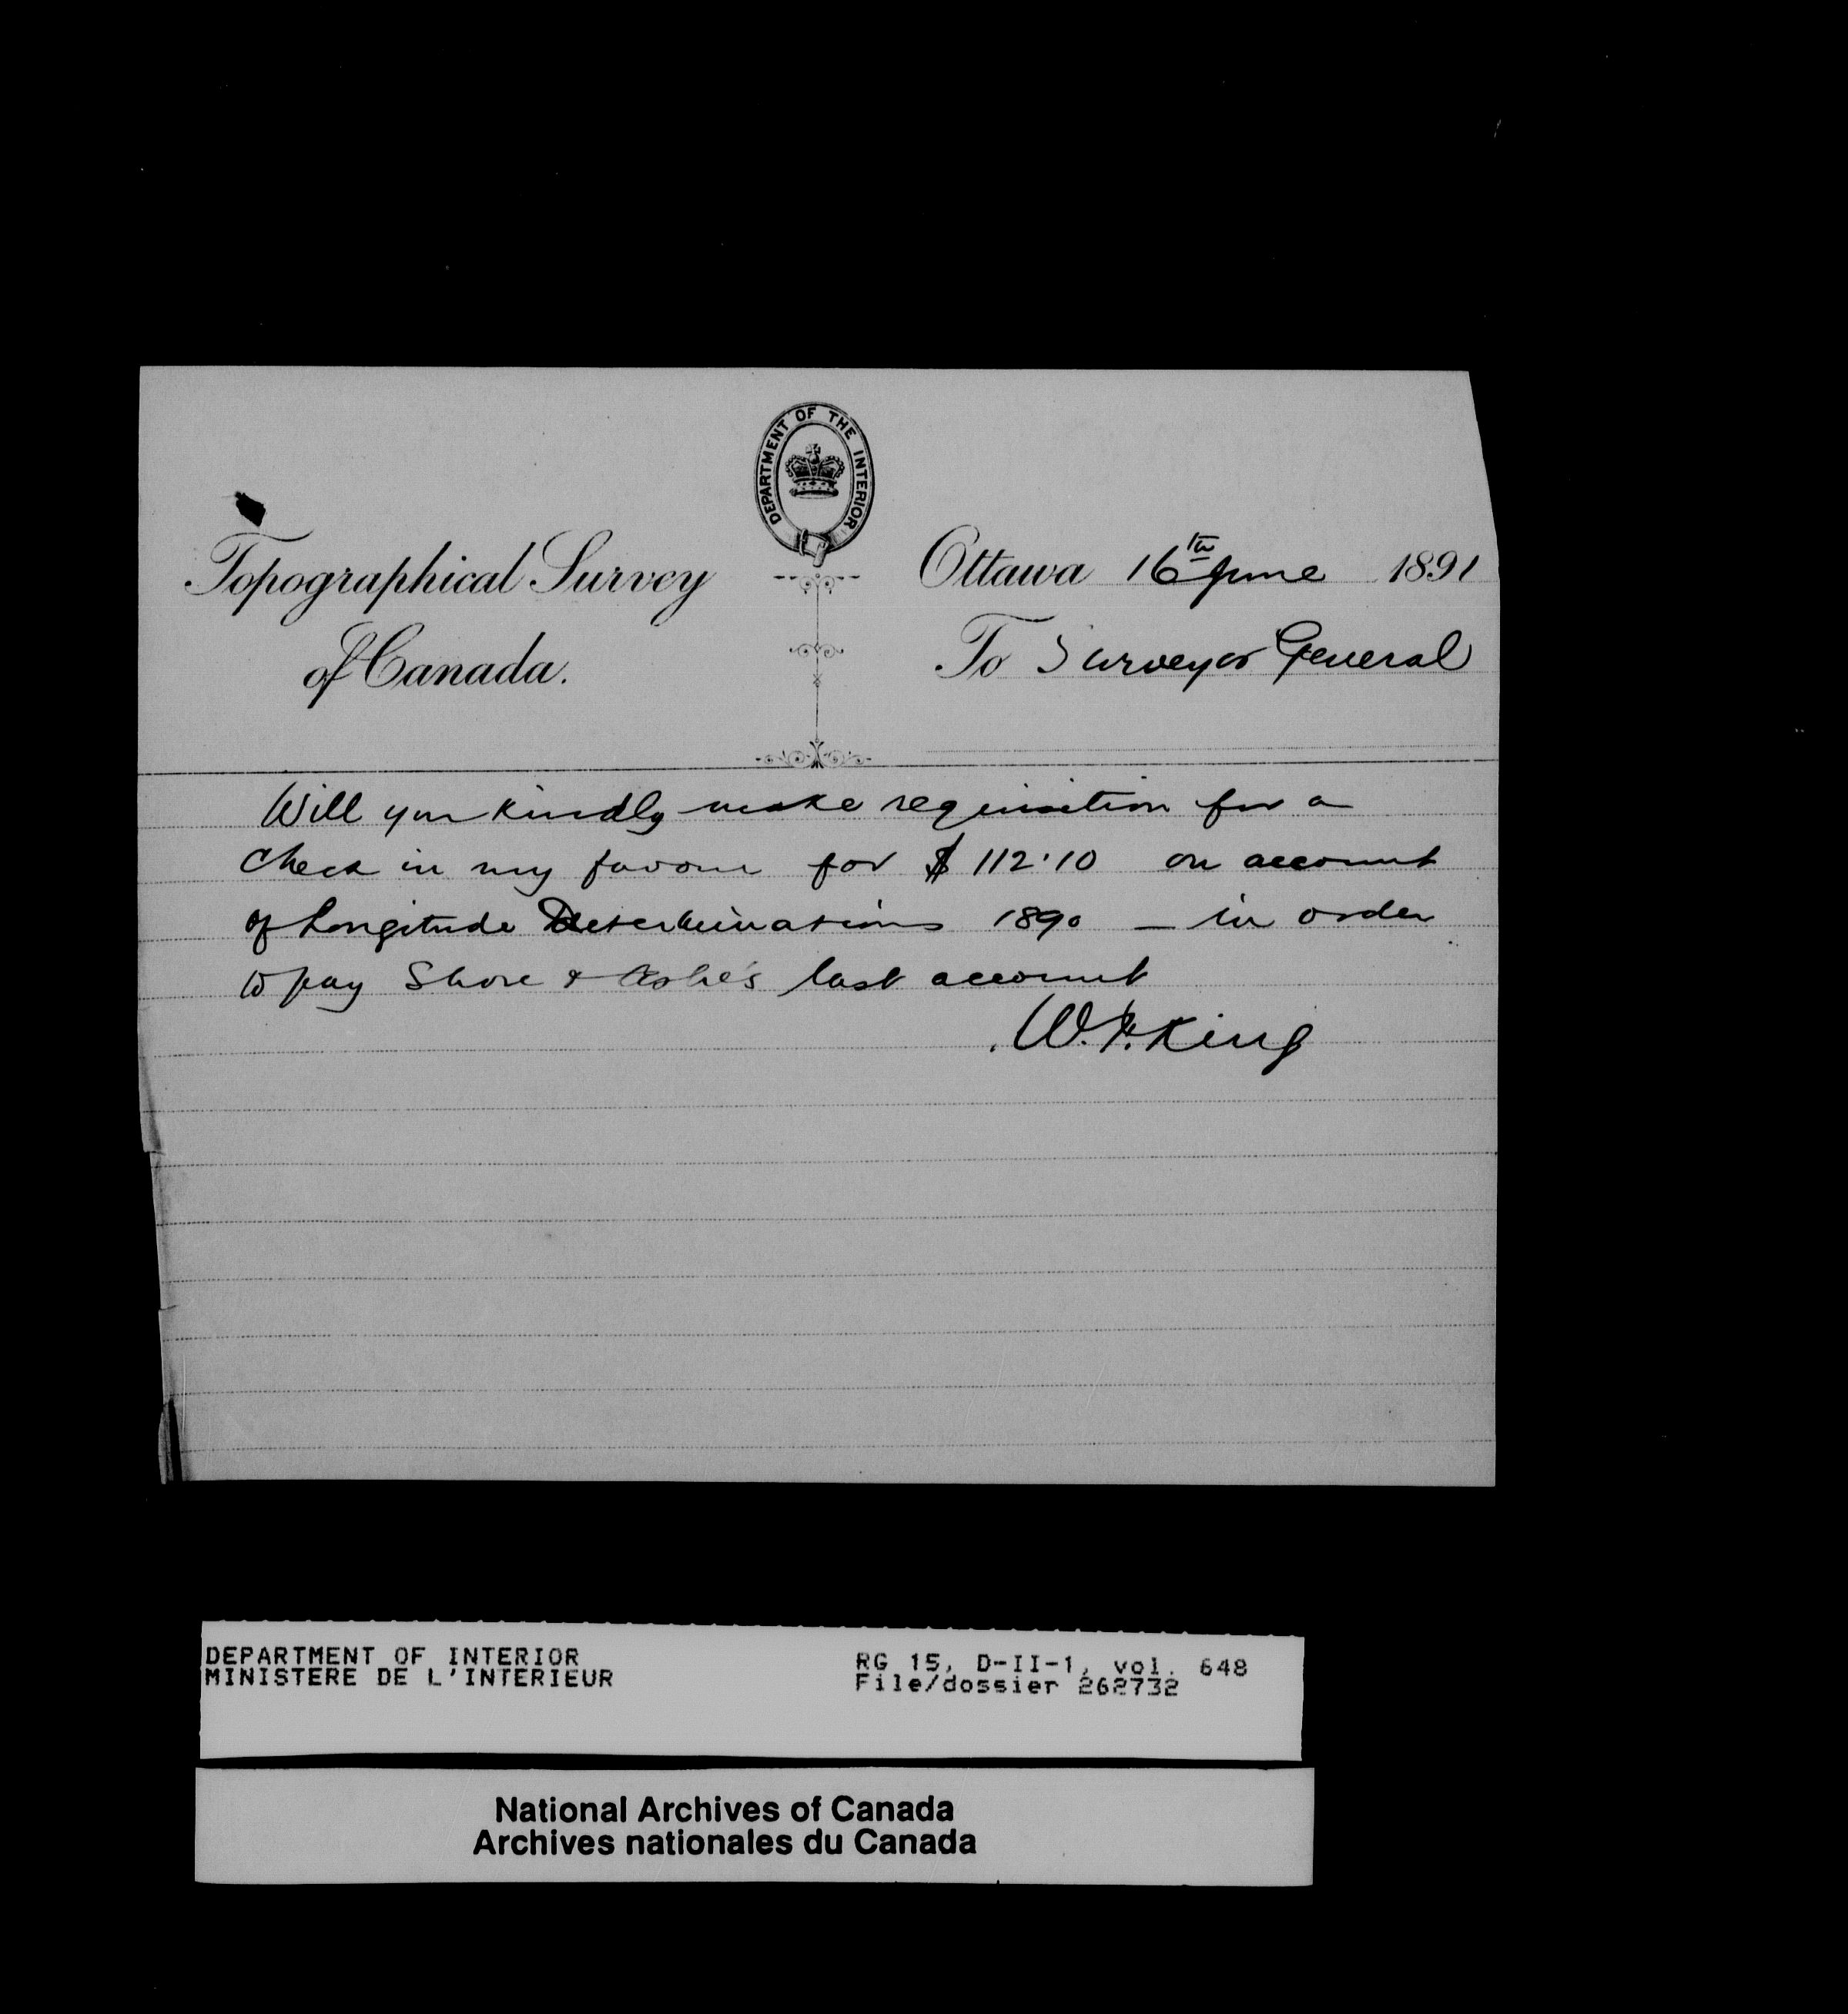 DEPARTMENT OF THE INTERIOR
Topographical Survey
of Canada.
Ottawa 16th June 1891
To Surveyor General
Will you kindly make requisition for a
check in my favour for $112.10 on account
of Longitude Determinations 1890 — in order
to pay Shore & Ashe's last account
W.F. King
DEPARTMENT OF INTERIOR
MINISTERE DE L'INTERIEUR
RG 15, D-II-1, vol. 648
File/dossier 262732
National Archives of Canada
Archives nationales du Canada